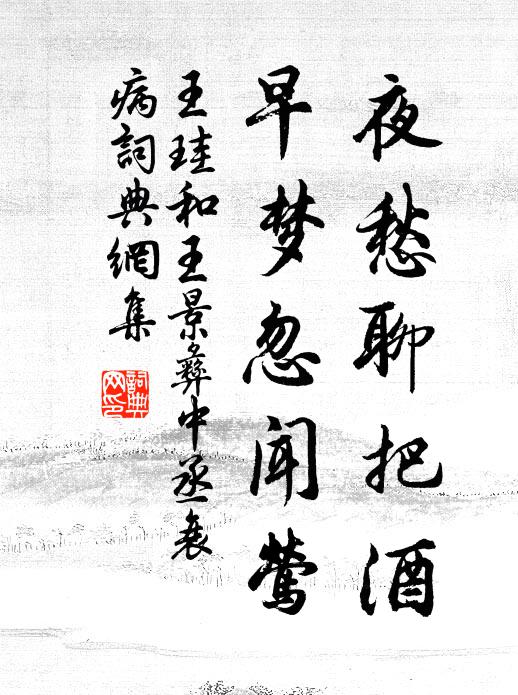 夜愁聊把酒
早梦忽闻莺
王珪和王景彝中丞衰
病詞典網集
詞典网印